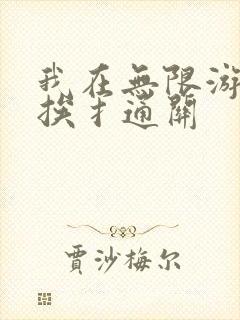 我在無限游
挨扌通關
賈沙梅尔